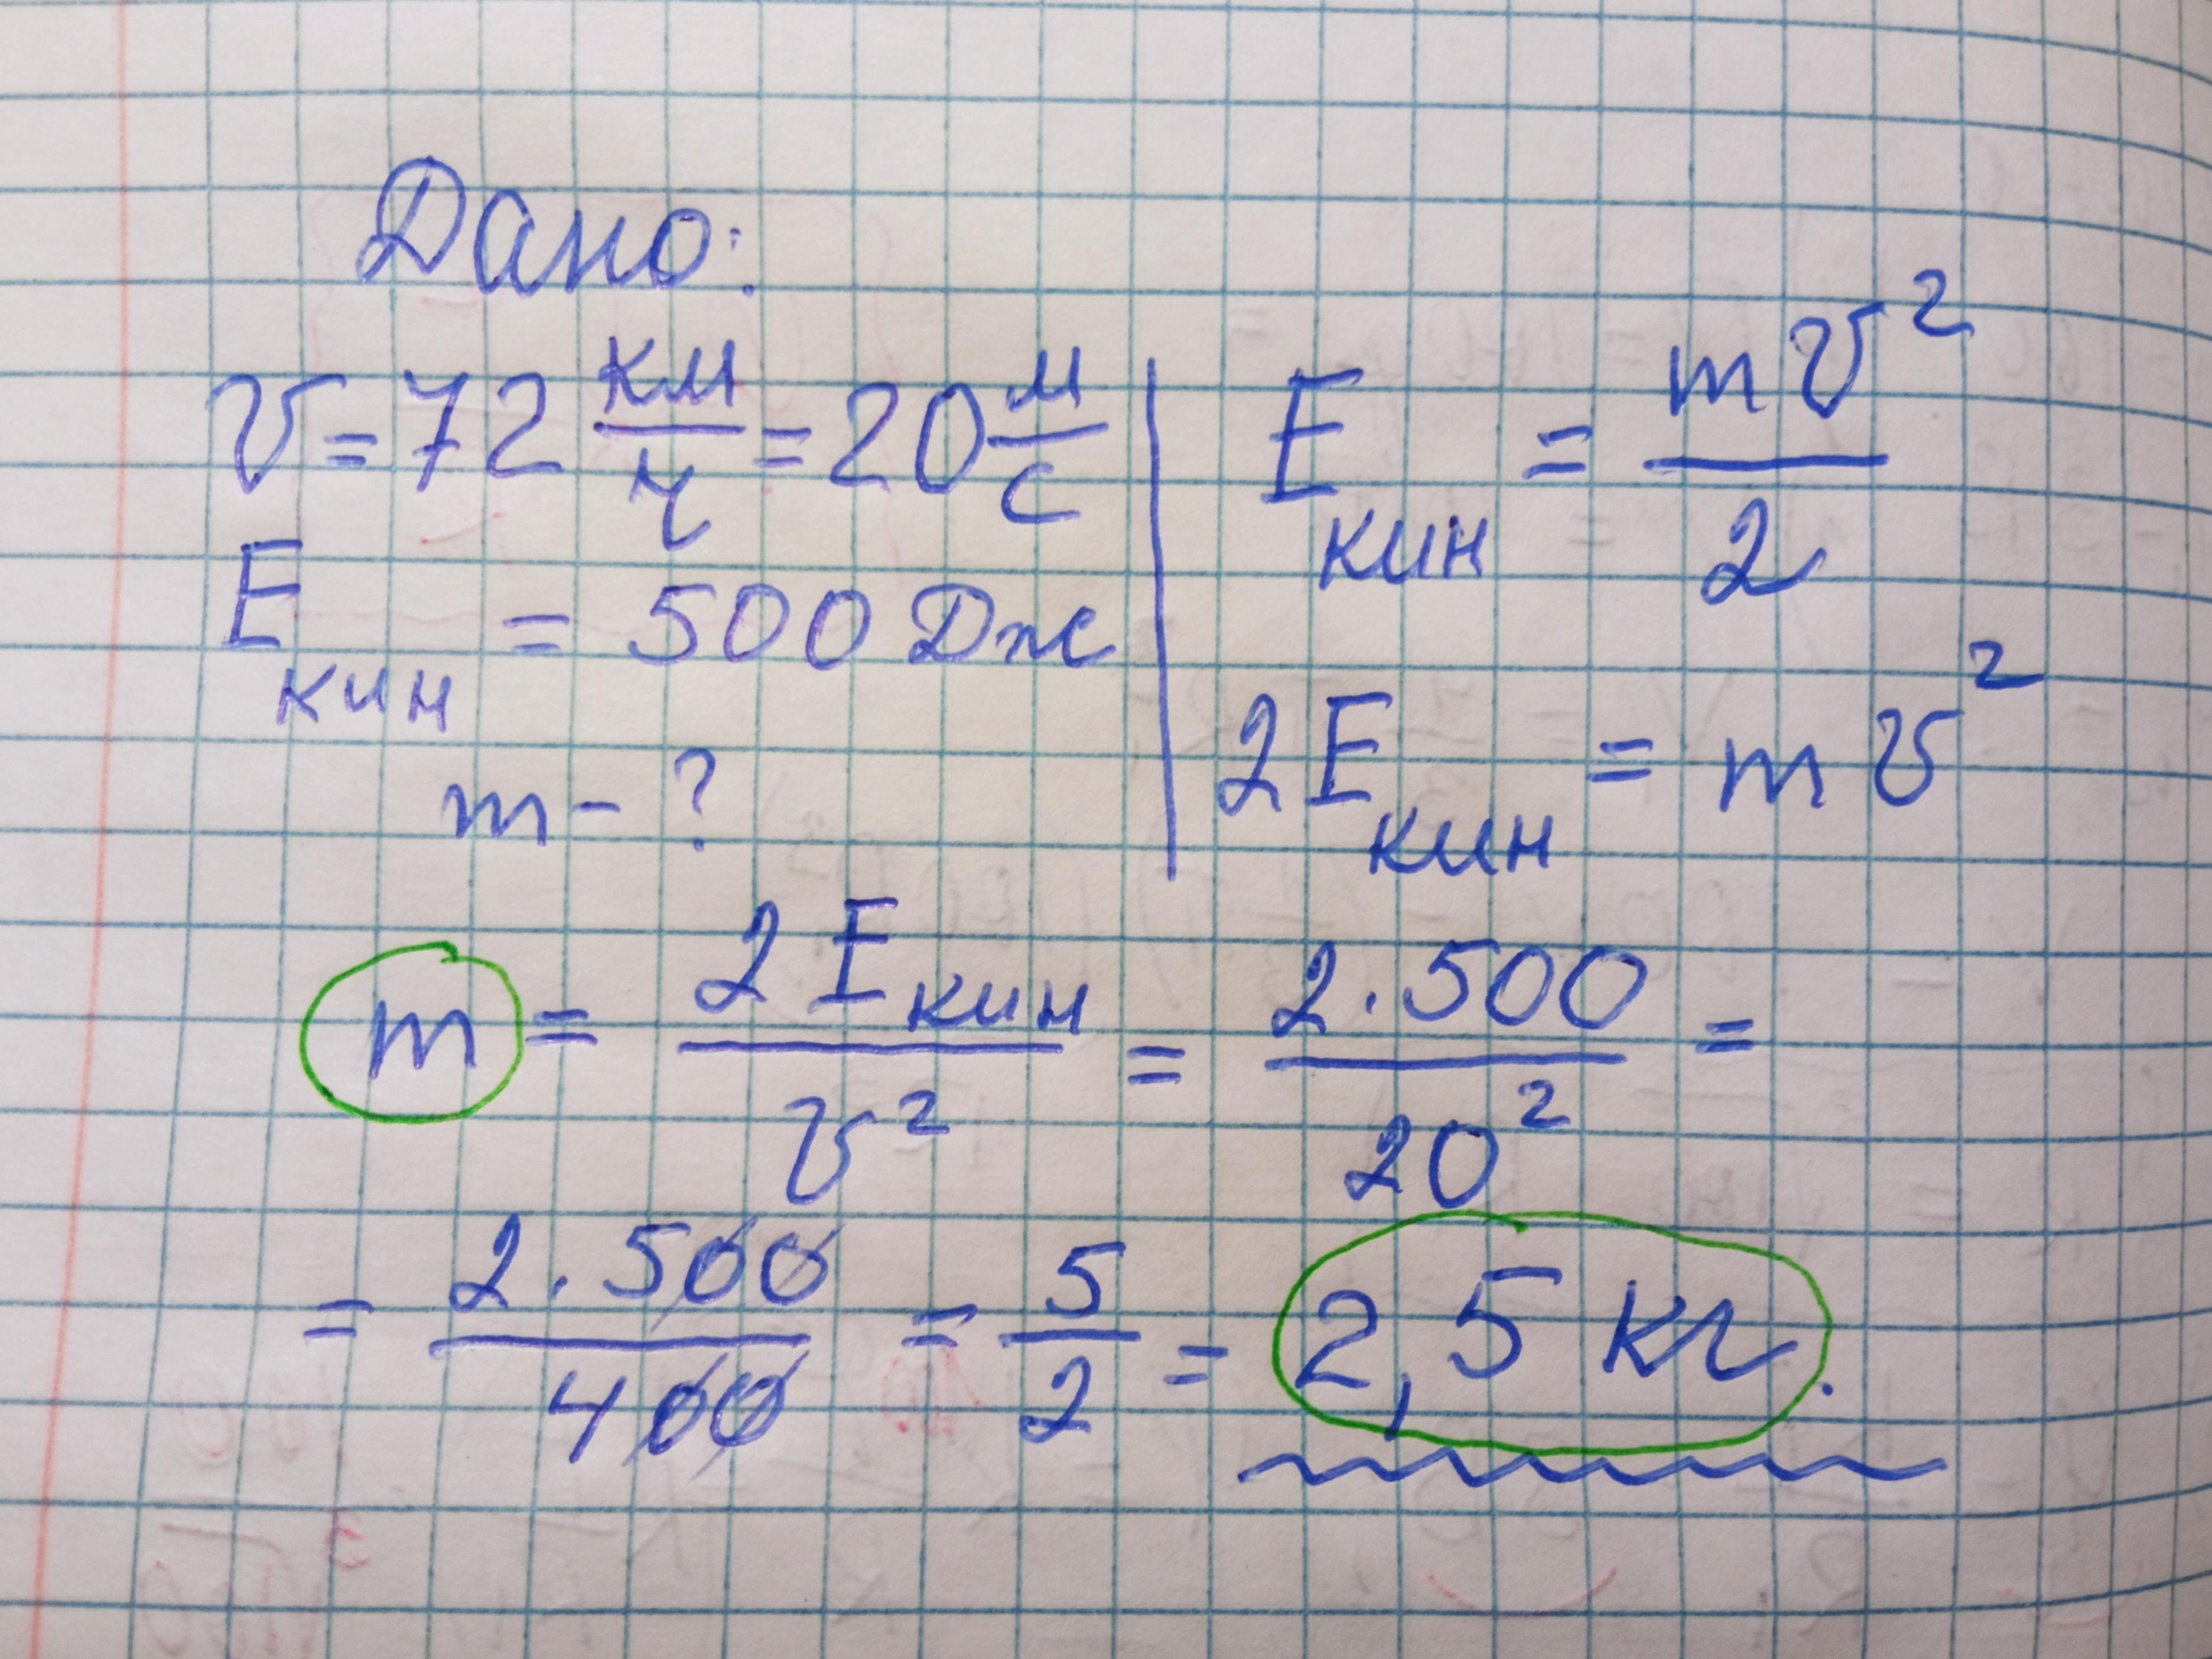 Дано:
v = 72 км/ч = 20 м/с
E кин = 500 Дж
m - ?
E кин = mv²/2
2E кин = mv²
m = 2Eкин/v² = 2·500/20² =
= 2·500/400 = 5/2 = 2,5 кг.